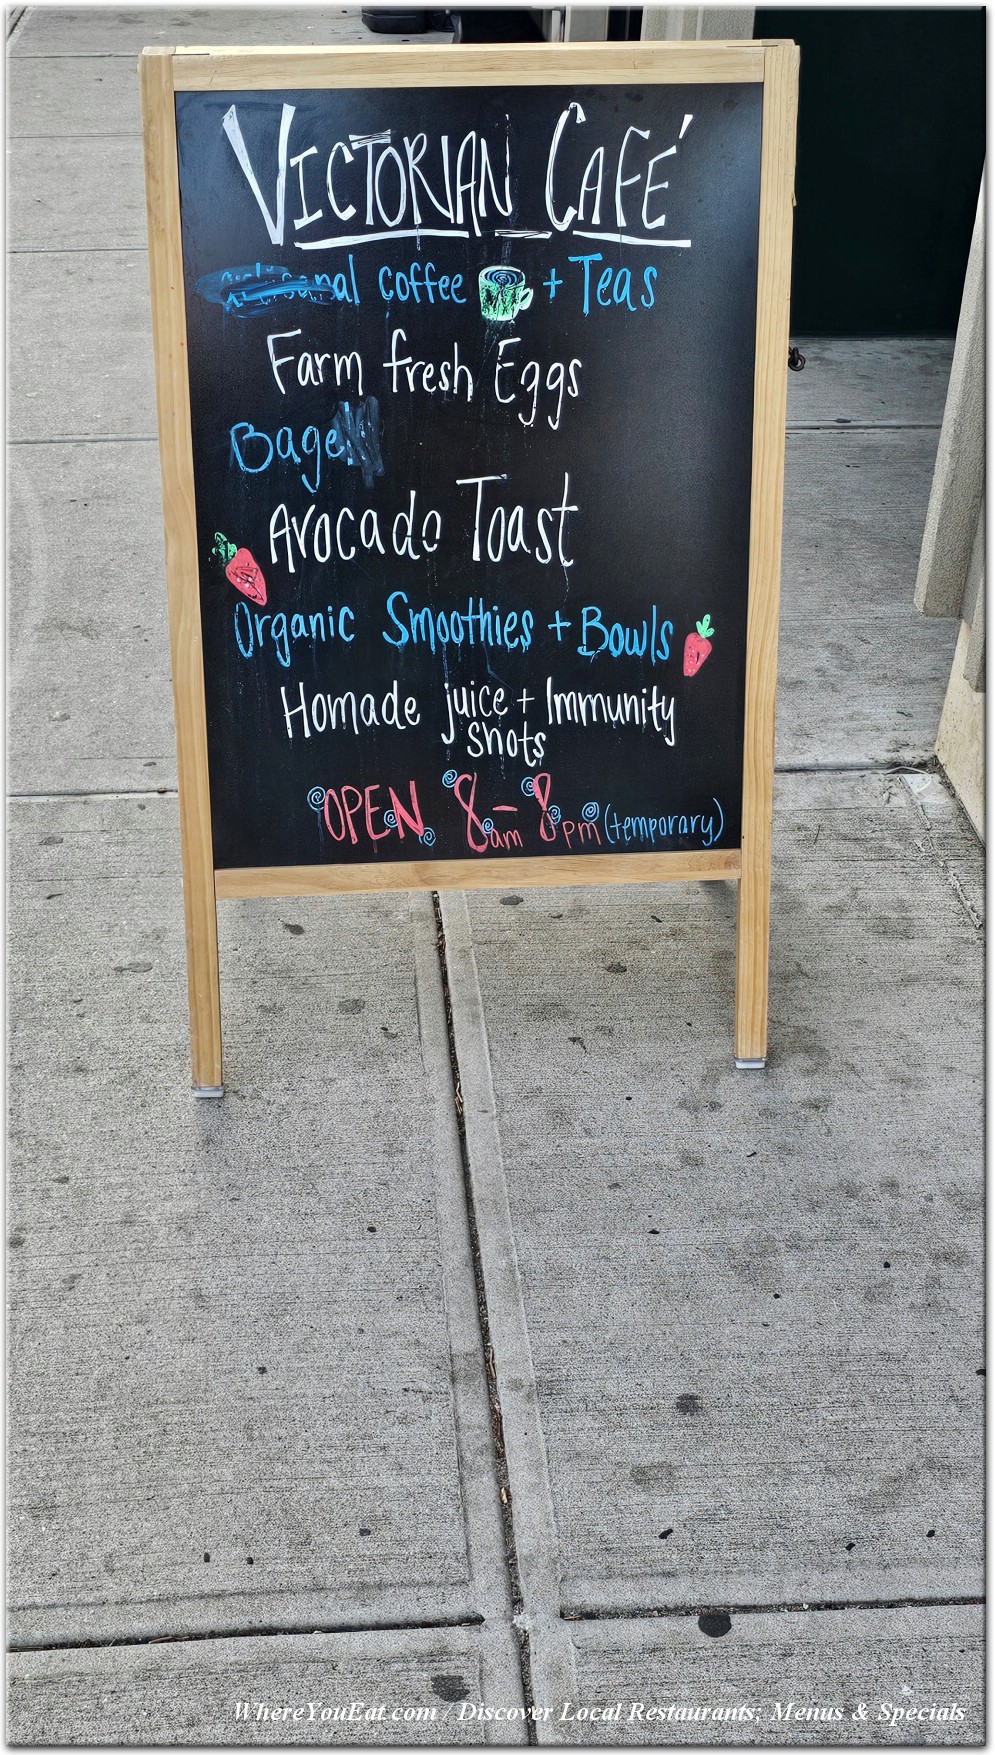 VICTORIAN CAFÉ
artisanal coffee + Teas
Farm fresh Eggs
Bage
Avocado Toast
Organic Smoothies + Bowls
Homade juice + Immunity
shots
OPEN 8am - 8pm (temporary)
WhereYouEat.com / Discover Local Restaurants, Menus & Specials